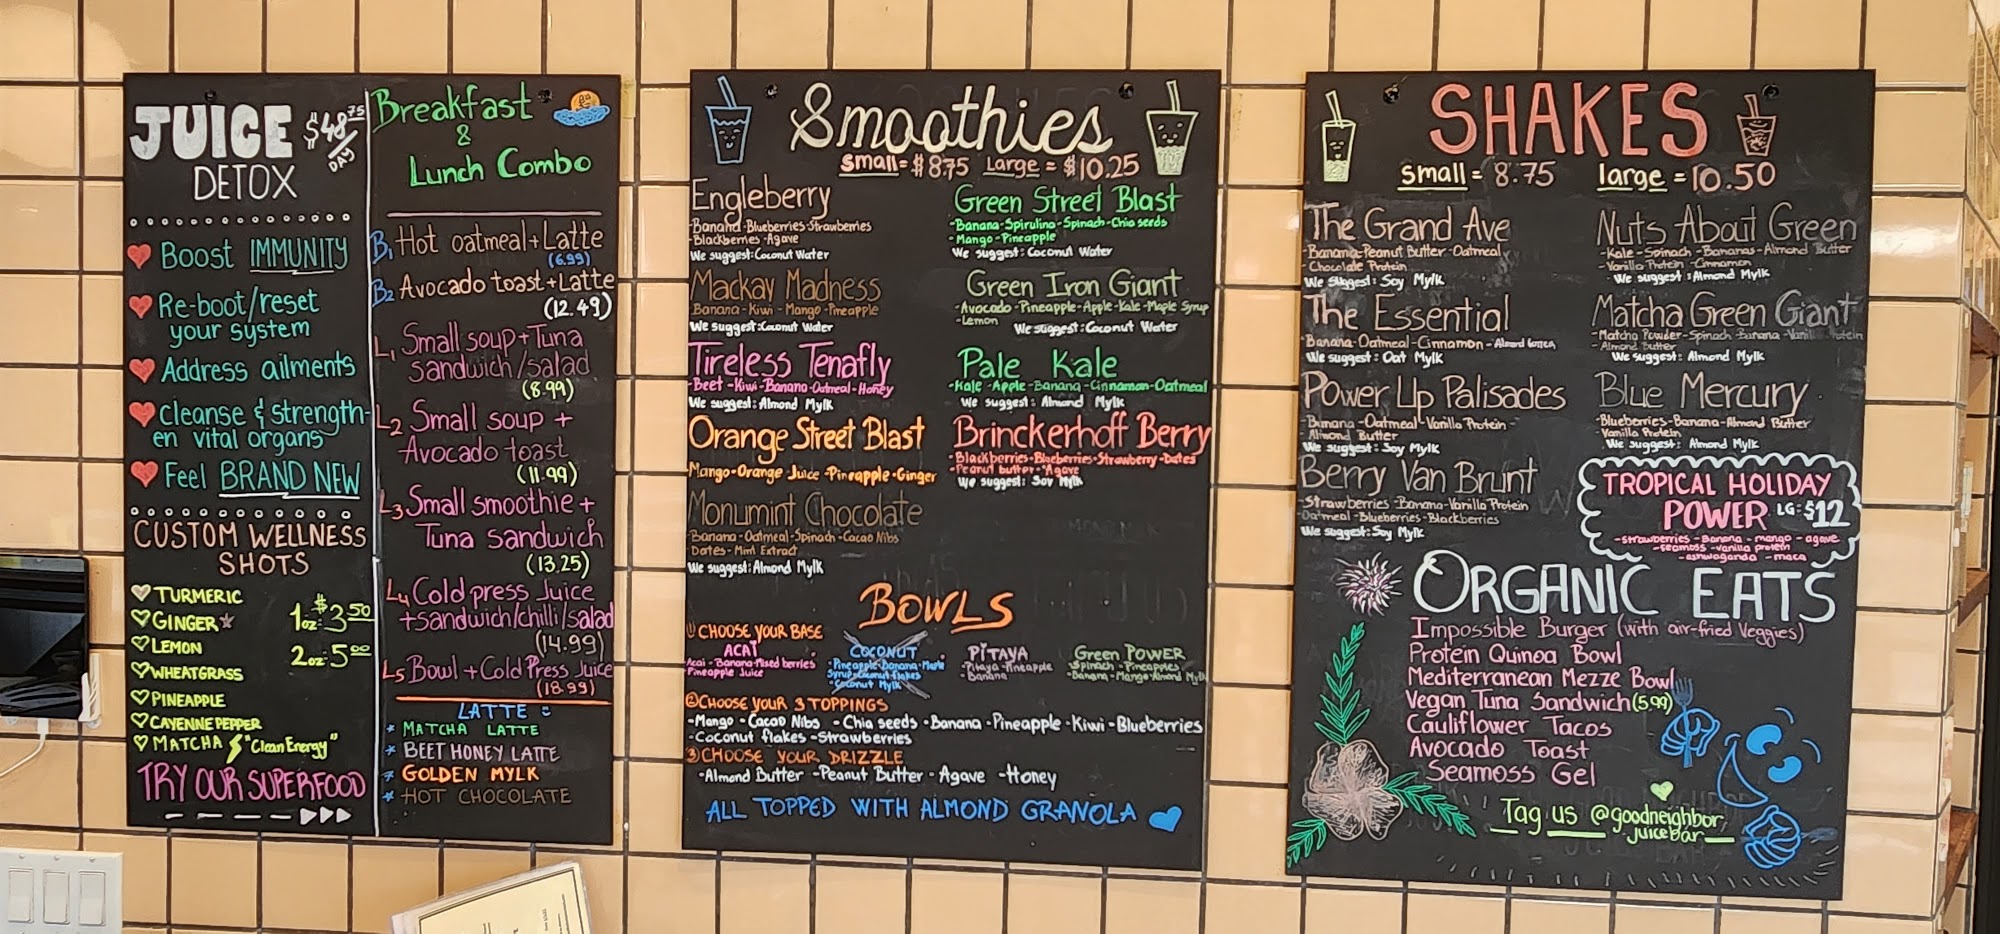 JUICE
DETOX
$48.75/DAY
Boost IMMUNITY
Re-boot/reset
your system
Address ailments
Cleanse & strength-
en vital organs
Feel BRAND NEW
CUSTOM WELLNESS
SHOTS
TURMERIC
GINGER
LEMON
WHEATGRASS
PINEAPPLE
CAYENNE PEPPER
MATCHA "Clean Energy"
1oz: $3.50
2oz: 5.00
TRY OUR SUPERFOOD
Breakfast
&
Lunch Combo
B1 Hot oatmeal+Latte
(6.99)
B2 Avocado toast+Latte
(12.49)
L1 Small soup+Tuna
sandwich/salad
(8.99)
L2 Small soup +
Avocado toast
(11.99)
L3 Small smoothie +
Tuna sandwich
(13.25)
L4 Cold press Juice
+sandwich/chilli/salad
(14.99)
L5 Bowl + Cold Press Juice
(18.99)
LATTE :
* MATCHA LATTE
* BEET HONEY LATTE
* GOLDEN MYLK
* HOT CHOCOLATE
Smoothies
small = $8.75 Large = $10.25
Engleberry
-Banana-Blueberries-Strawberries
-Blackberries-Agave
We suggest: Coconut Water
Mackay Madness
Banana-Kiwi-Mango-Pineapple
We suggest: Coconut Water
Tireless Tenafly
-Beet-Kiwi-Banana-Oatmeal-Honey
We suggest: Almond Mylk
Orange Street Blast
-Mango-Orange Juice-Pineapple-Ginger
Monumint Chocolate
-Banana-Oatmeal-Spinach-Cacao Nibs
Dates-Mint Extract
We suggest: Almond Mylk
Green Street Blast
-Banana-Spirulina-Spinach-Chia seeds
-Mango-Pineapple
We suggest: Coconut Water
Green Iron Giant
-Avocado-Pineapple-Apple-Kale-Maple Syrup
-Lemon
We suggest: Coconut Water
Pale Kale
-Kale-Apple-Banana-Cinnamon-Oatmeal
We suggest: Almond Mylk
Brinckerhoff Berry
-Blackberries-Blueberries-Strawberry-Dates
-Peanut butter-Agave
We suggest: Soy Mylk
BOWLS
① CHOOSE YOUR BASE
ACAÍ
Acai-Banana-Mixed berries
Pineapple Juice
COCONUT
-Pineapple-Banana-Maple
Syrup-Coconut flakes
-Coconut Mylk
PITAYA
-Pitaya-Pineapple
-Banana
Green POWER
Spinach-Pineapples
-Banana-Mango-Almond Mylk
② CHOOSE YOUR 3 TOPPINGS
-Mango-Cacao Nibs-Chia seeds-Banana-Pineapple-Kiwi-Blueberries
-Coconut flakes-Strawberries
③ CHOOSE YOUR DRIZZLE
-Almond Butter-Peanut Butter-Agave-Honey
ALL TOPPED WITH ALMOND GRANOLA
SHAKES
small = 8.75 large = 10.50
The Grand Ave
-Banana-Peanut Butter-Oatmeal
-Chocolate Protein
We Suggest: Soy Mylk
The Essential
-Banana-Oatmeal-Cinnamon-Almond Butter
We suggest: Oat Mylk
Power Up Palisades
Banana-Oatmeal-Vanilla Protein-
-Almond Butter
We suggest: Soy Mylk
Berry Van Brunt
-Strawberries-Banana-Vanilla Protein
-Oatmeal-Blueberries-Blackberries
We suggest: Soy Mylk
Nuts About Green
-Kale-Spinach-Bananas-Almond Butter
-Vanilla Protein-Cinnamon
We suggest: Almond Mylk
Matcha Green Giant
-Matcha Powder-Spinach-Banana-Vanilla Protein
-Almond Butter
We suggest: Almond Mylk
Blue Mercury
Blueberries-Banana-Almond Butter
Vanilla Protein
We suggest: Almond Mylk
TROPICAL HOLIDAY
POWER LG: $12
-strawberries-Banana-mango-agave
-seamoss-vanilla protein
-ashwaganda-maca
ORGANIC EATS
Impossible Burger (with air-fried Veggies)
Protein Quinoa Bowl
Mediterranean Mezze Bowl
Vegan Tuna Sandwich (5.99)
Cauliflower Tacos
Avocado Toast
Seamoss Gel
Tag us @goodneighbor
juicebar